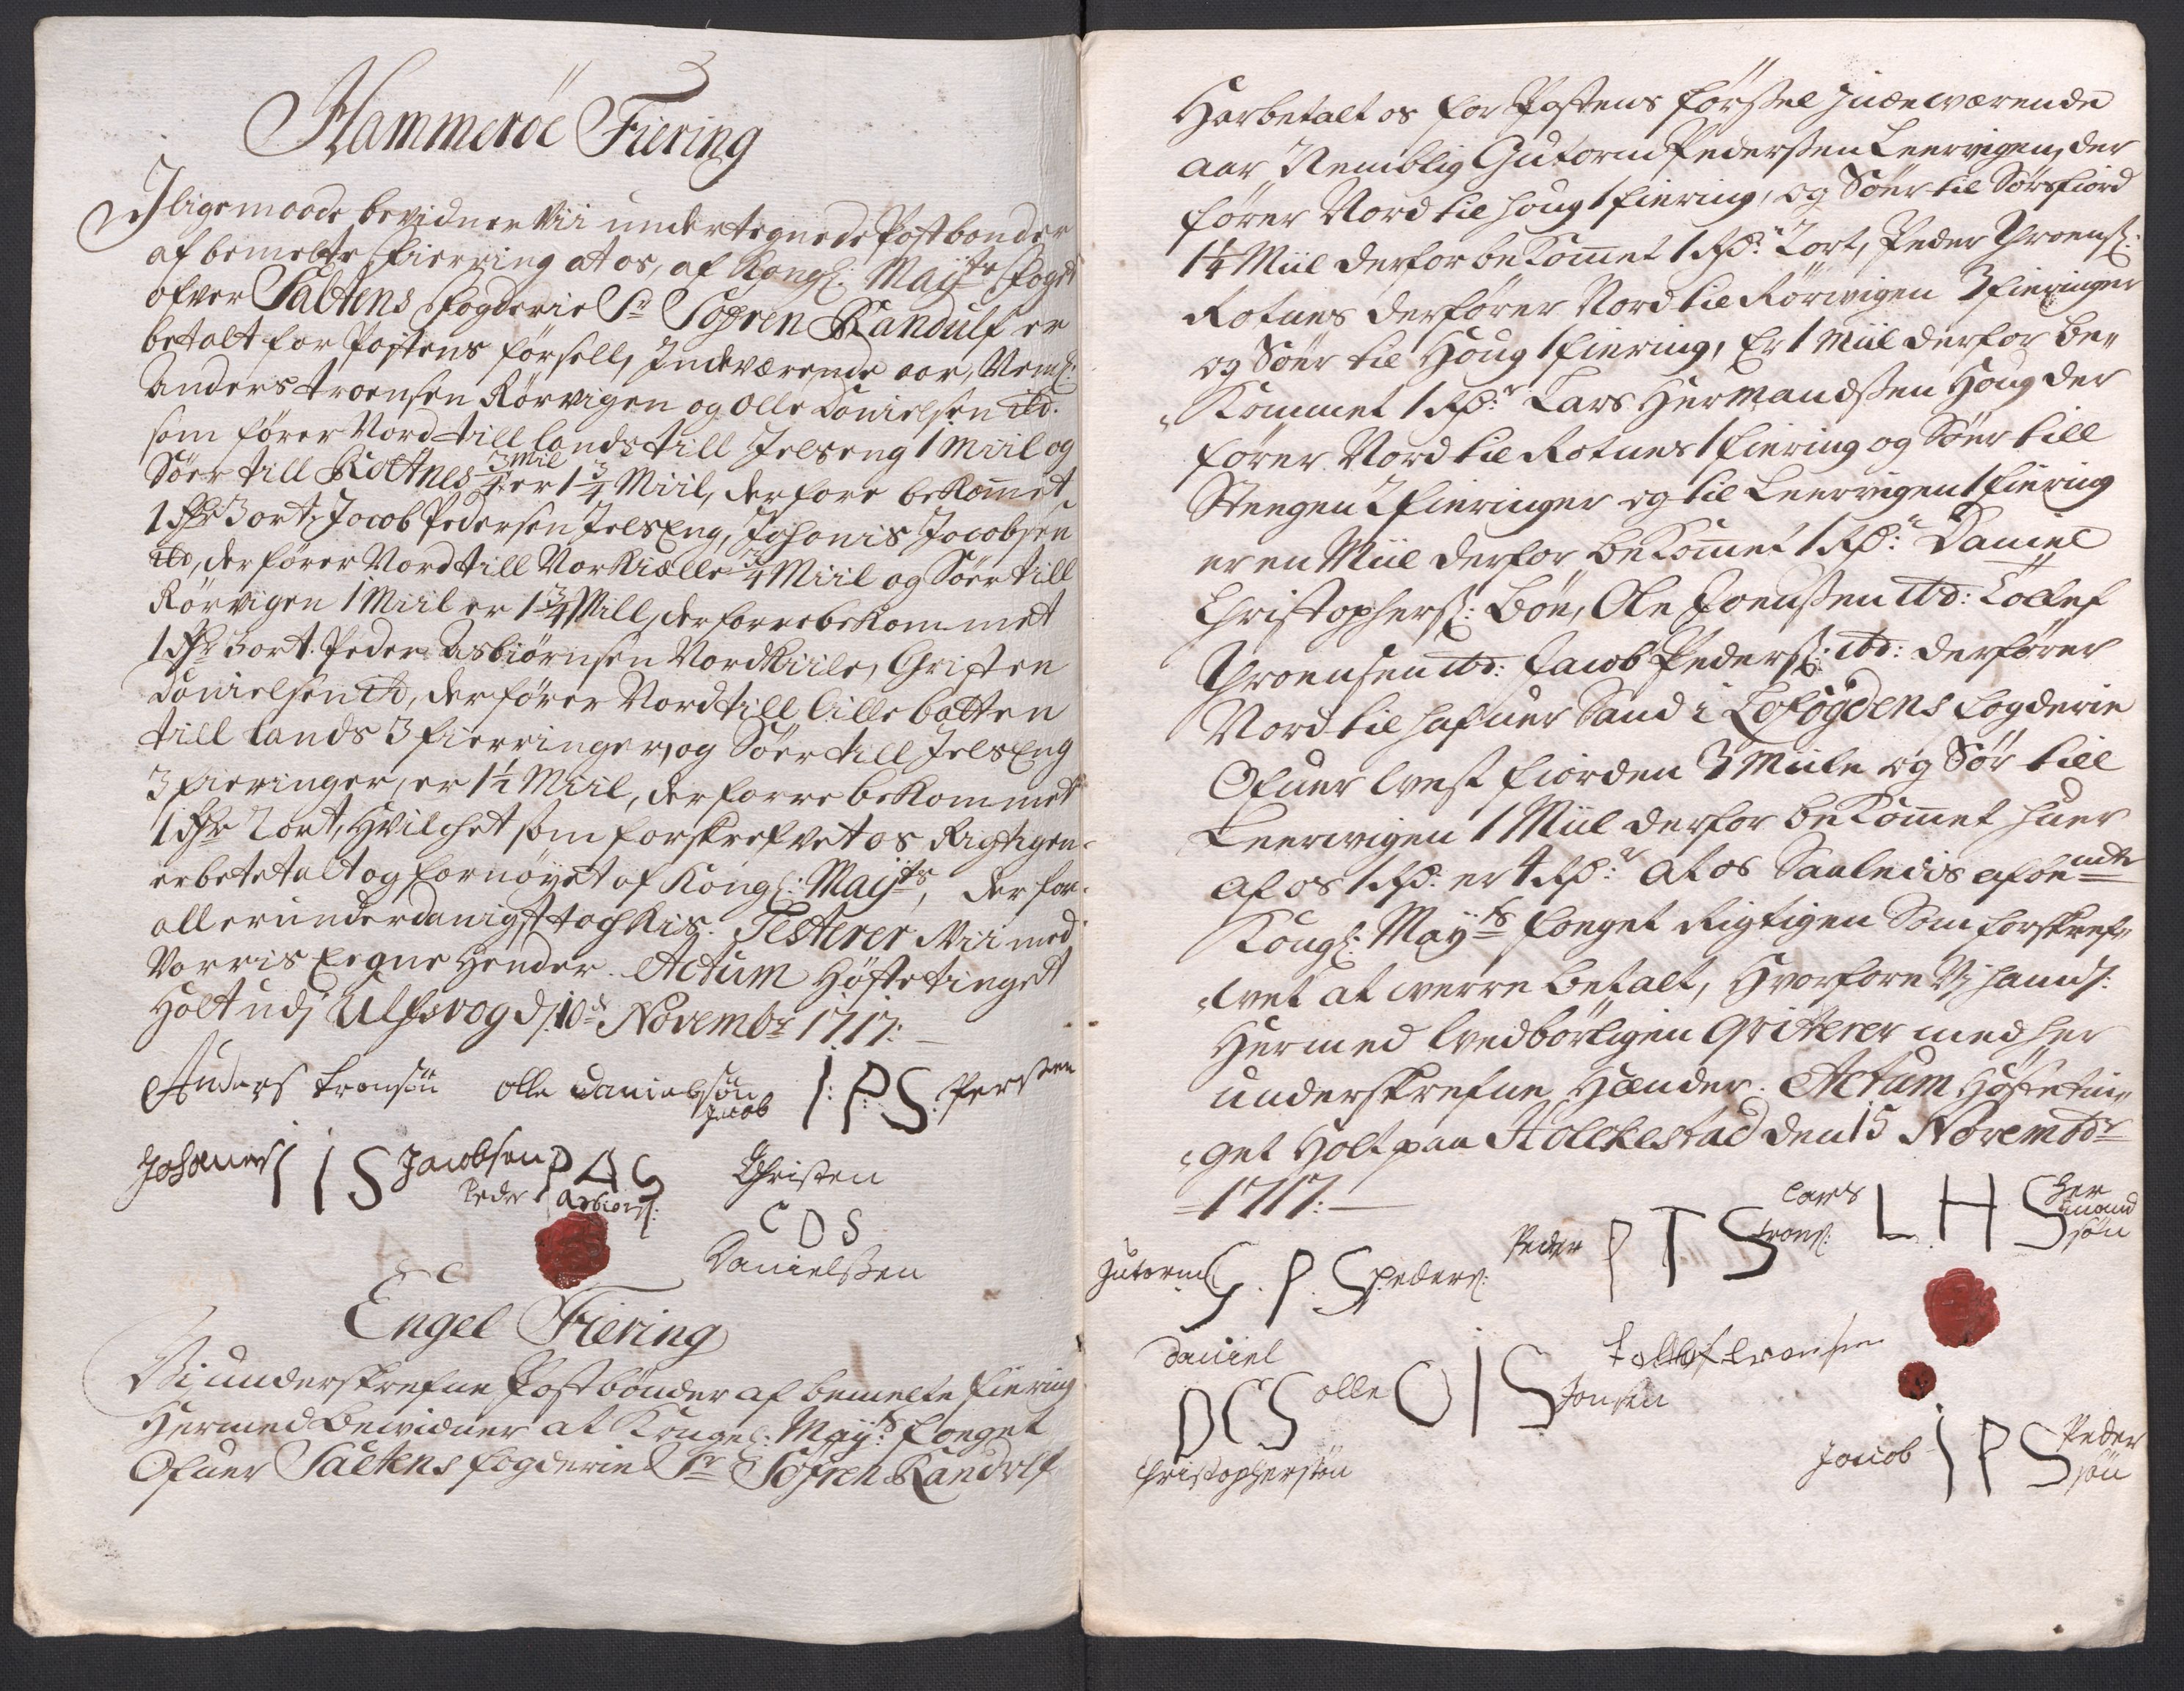 Hammerøe Fiering
Iligemaade bevidner Vii undertegnede Postbønder
af bemelte Fierring at os, af Kongl: Maÿts Fogdt
ofver Saltens Fogderie Sr Søfren Randulf er
betalt for Postens førsell, Indeværende aar, Neml:
Anders troensen Rørvigen og Olle Danielsen ibd.
som fører Nord till lands till Jelseng 1 Miil og
Søer till Rottnes 3/4 Mil er 1 3/4 Miil, derfore bekommet
1 Rdr 3 ort, Jacob Pedersen JelsEng, Johanis Jacobsen
ibd, der fører Nord till Norkiælle 3/4 Miil og Søer till
Rørvigen 1 Miil er 1 3/4 Mill, derforre bekommet
1 Rdr 3 ort. Peder Asbiørnsen Nordkiile, Christen
Danielsen ib, der fører Nord till lille batten
till lands 3 fierringer, og Søer till JelsEng
3 fieringer, er 1 1/2 Miil, der forre bekommet
1 Rdr 2 ort, Hvilchet som forskrefvet os Rigtigen
er betetalt og fornøyet af Kongl: Maÿts, der for
allerunderdanigst tachkis. Testerer Vii med
Vorris Eegne Hender. Actum Høstetinget
Holt udj Ulfsvog d 10de Novembr 1717.
Anders tronsøn olle danielsøn Jacob I: P: S: Persen
Johannes I I S Jacobsen Peder P A S Asbiørs:
Christen
C D S
Danielssen
Engel Fiering
Vi underskrefne Postbønder af bemelte fiering
Hermed bevidner at Kongel: Maÿts foeget
Ofuer Saltens fogderie Sr Søfren Randolf
Har betalt os for Postens førssel Inderværende
aar, Nemblig Gutorm Pederssen Leervigen, der
fører Nord til houg 1 fiering, og Søer til Sørfiord
1 1/4 Miil derfor bekommet 1 Rd: 1 ort, Peder Throens:
Rotnes der fører Nord til Rørvigen 3 fieringer
og Søer til Houg 1 fiering, Er 1 Miil derfor be-
kommet 1 Rd:r Lars Hermandssen Houg der
fører Nord til Rotnes 1 fiering og Søer till
Stengen 2 fieringer og til Leervigen 1 fiering
er en Miil derfor bekommet 1 Rd:r Daniel
Christophers: Bøe, Ole Joenssen ibd: Tollef
Throensen ibd: Jacob Peders: ibd: der fører
Nord til hafuer Sand i Lofogdens fogderie
Ofuer Vest fiorden 3 Miile og Sør till
Leerwigen 1 Miil derfor bekommet huer
af os 1 Rd: er 4 Rd:r At os Saaledis af bemte
Kongl: Maÿts foeget Rigtigen Som forskref-
vet at verre betalt, Hvorfore Vj hannem
Hermed Vedbørligen Qvitterer med her
underskrefne Hænder. Actum Høstetin-
get Holt paa Hollkestad den 15 Novembr
1717:
Gutorm G. P. S peders: Peder P T S trons: Lars L H S Her mand søn
Daniel D C S Christophersøn olle O I S Jonsen tollef tronsen
Jacob I P S Peder søn